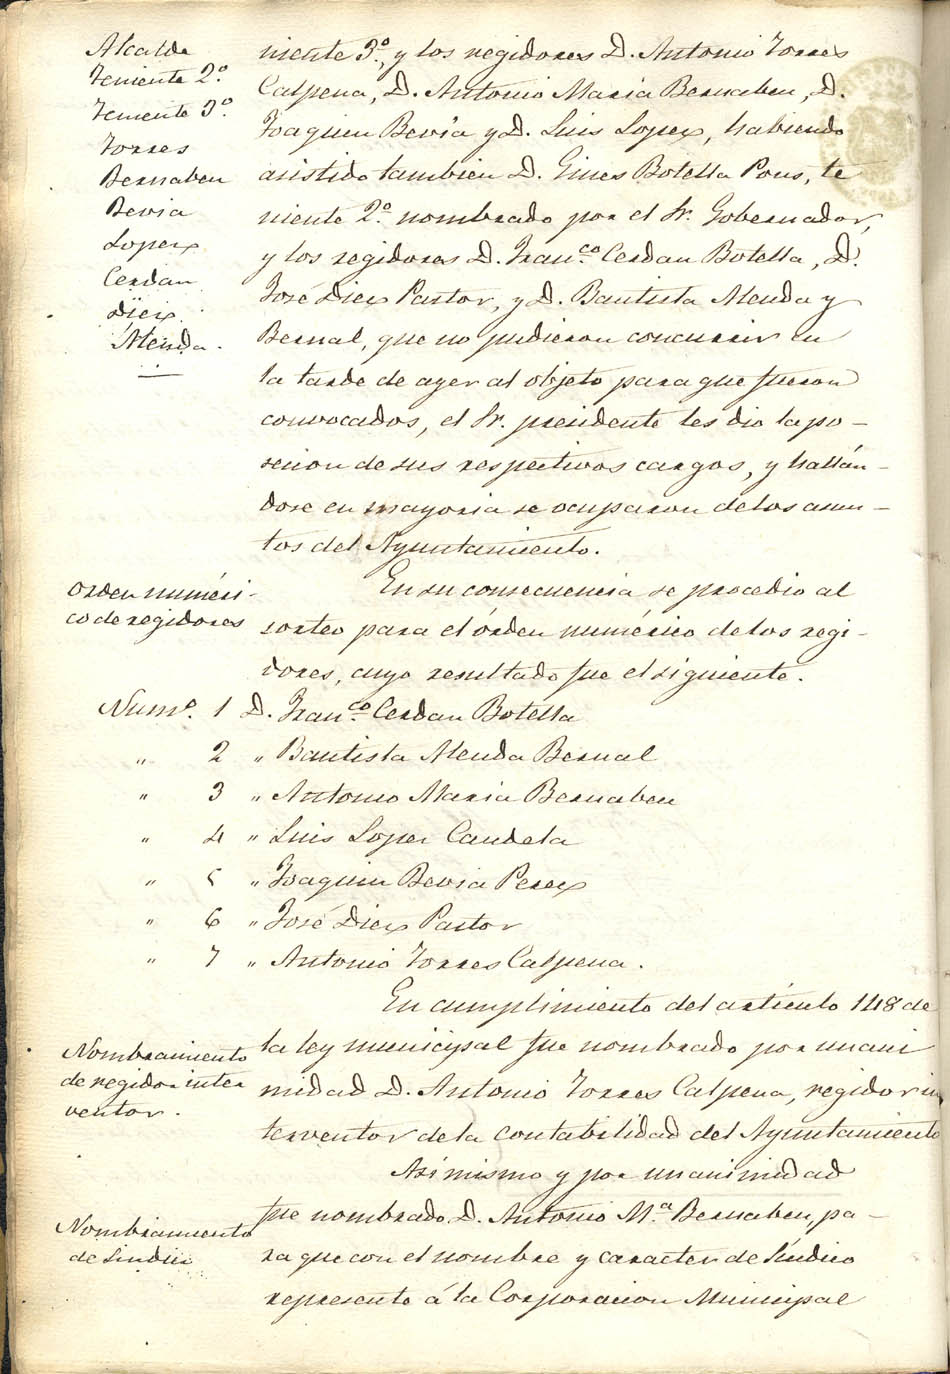 Alcalde
Teniente 2.º
Teniente 3.º
Torres
Bernabeu
Bevia
Lopez
Cerdan
Diez
Alenda.
niente 3.º, y los regidores D. Antonio Torres
Calpena, D. Antonio Maria Bernabeu, D.
Joaquin Bevia y D. Luis Lopez, habiendo
asistido tambien D. Gines Botella Pons, te
niente 2.º nombrado por el Sr. Gobernador,
y los regidores D. Fran.co Cerdan Botella, D.
José Diez Pastor, y D. Bautista Alenda y
Bernal, que no pudieron concurrir en
la tarde de ayer al objeto para que fueron
convocados, el Sr. presidente les dio la po-
sesion de sus respectivos cargos, y hallán-
dose en mayoria se ocuparon de los asun-
tos del Ayuntamiento.
Orden numéri-
co de regidores
En su consecuencia se procedio al
sorteo para el órden numérico de los regi-
dores, cuyo resultado fue el siguiente.
Num.º 1 D. Fran.co Cerdan Botella
" 2 " Bautista Alenda Bernal
" 3 " Antonio Maria Bernabeu
" 4 " Luis Lopez Candela
" 5 " Joaquin Bevia Perez
" 6 " José Diez Pastor
" 7 " Antonio Torres Calpena.
Nombramiento
de regidor inter
ventor.
En cumplimiento del artículo 148 de
la ley municipal fue nombrado por unani
midad D. Antonio Torres Calpena, regidor in
terventor de la contabilidad del Ayuntamiento
Nombramiento
de Sindico
Asi mismo y por unanimidad
fue nombrado D. Antonio M.a Bernabeu, pa-
ra que con el nombre y caracter de Síndico
represente á la Corporacion Municipal